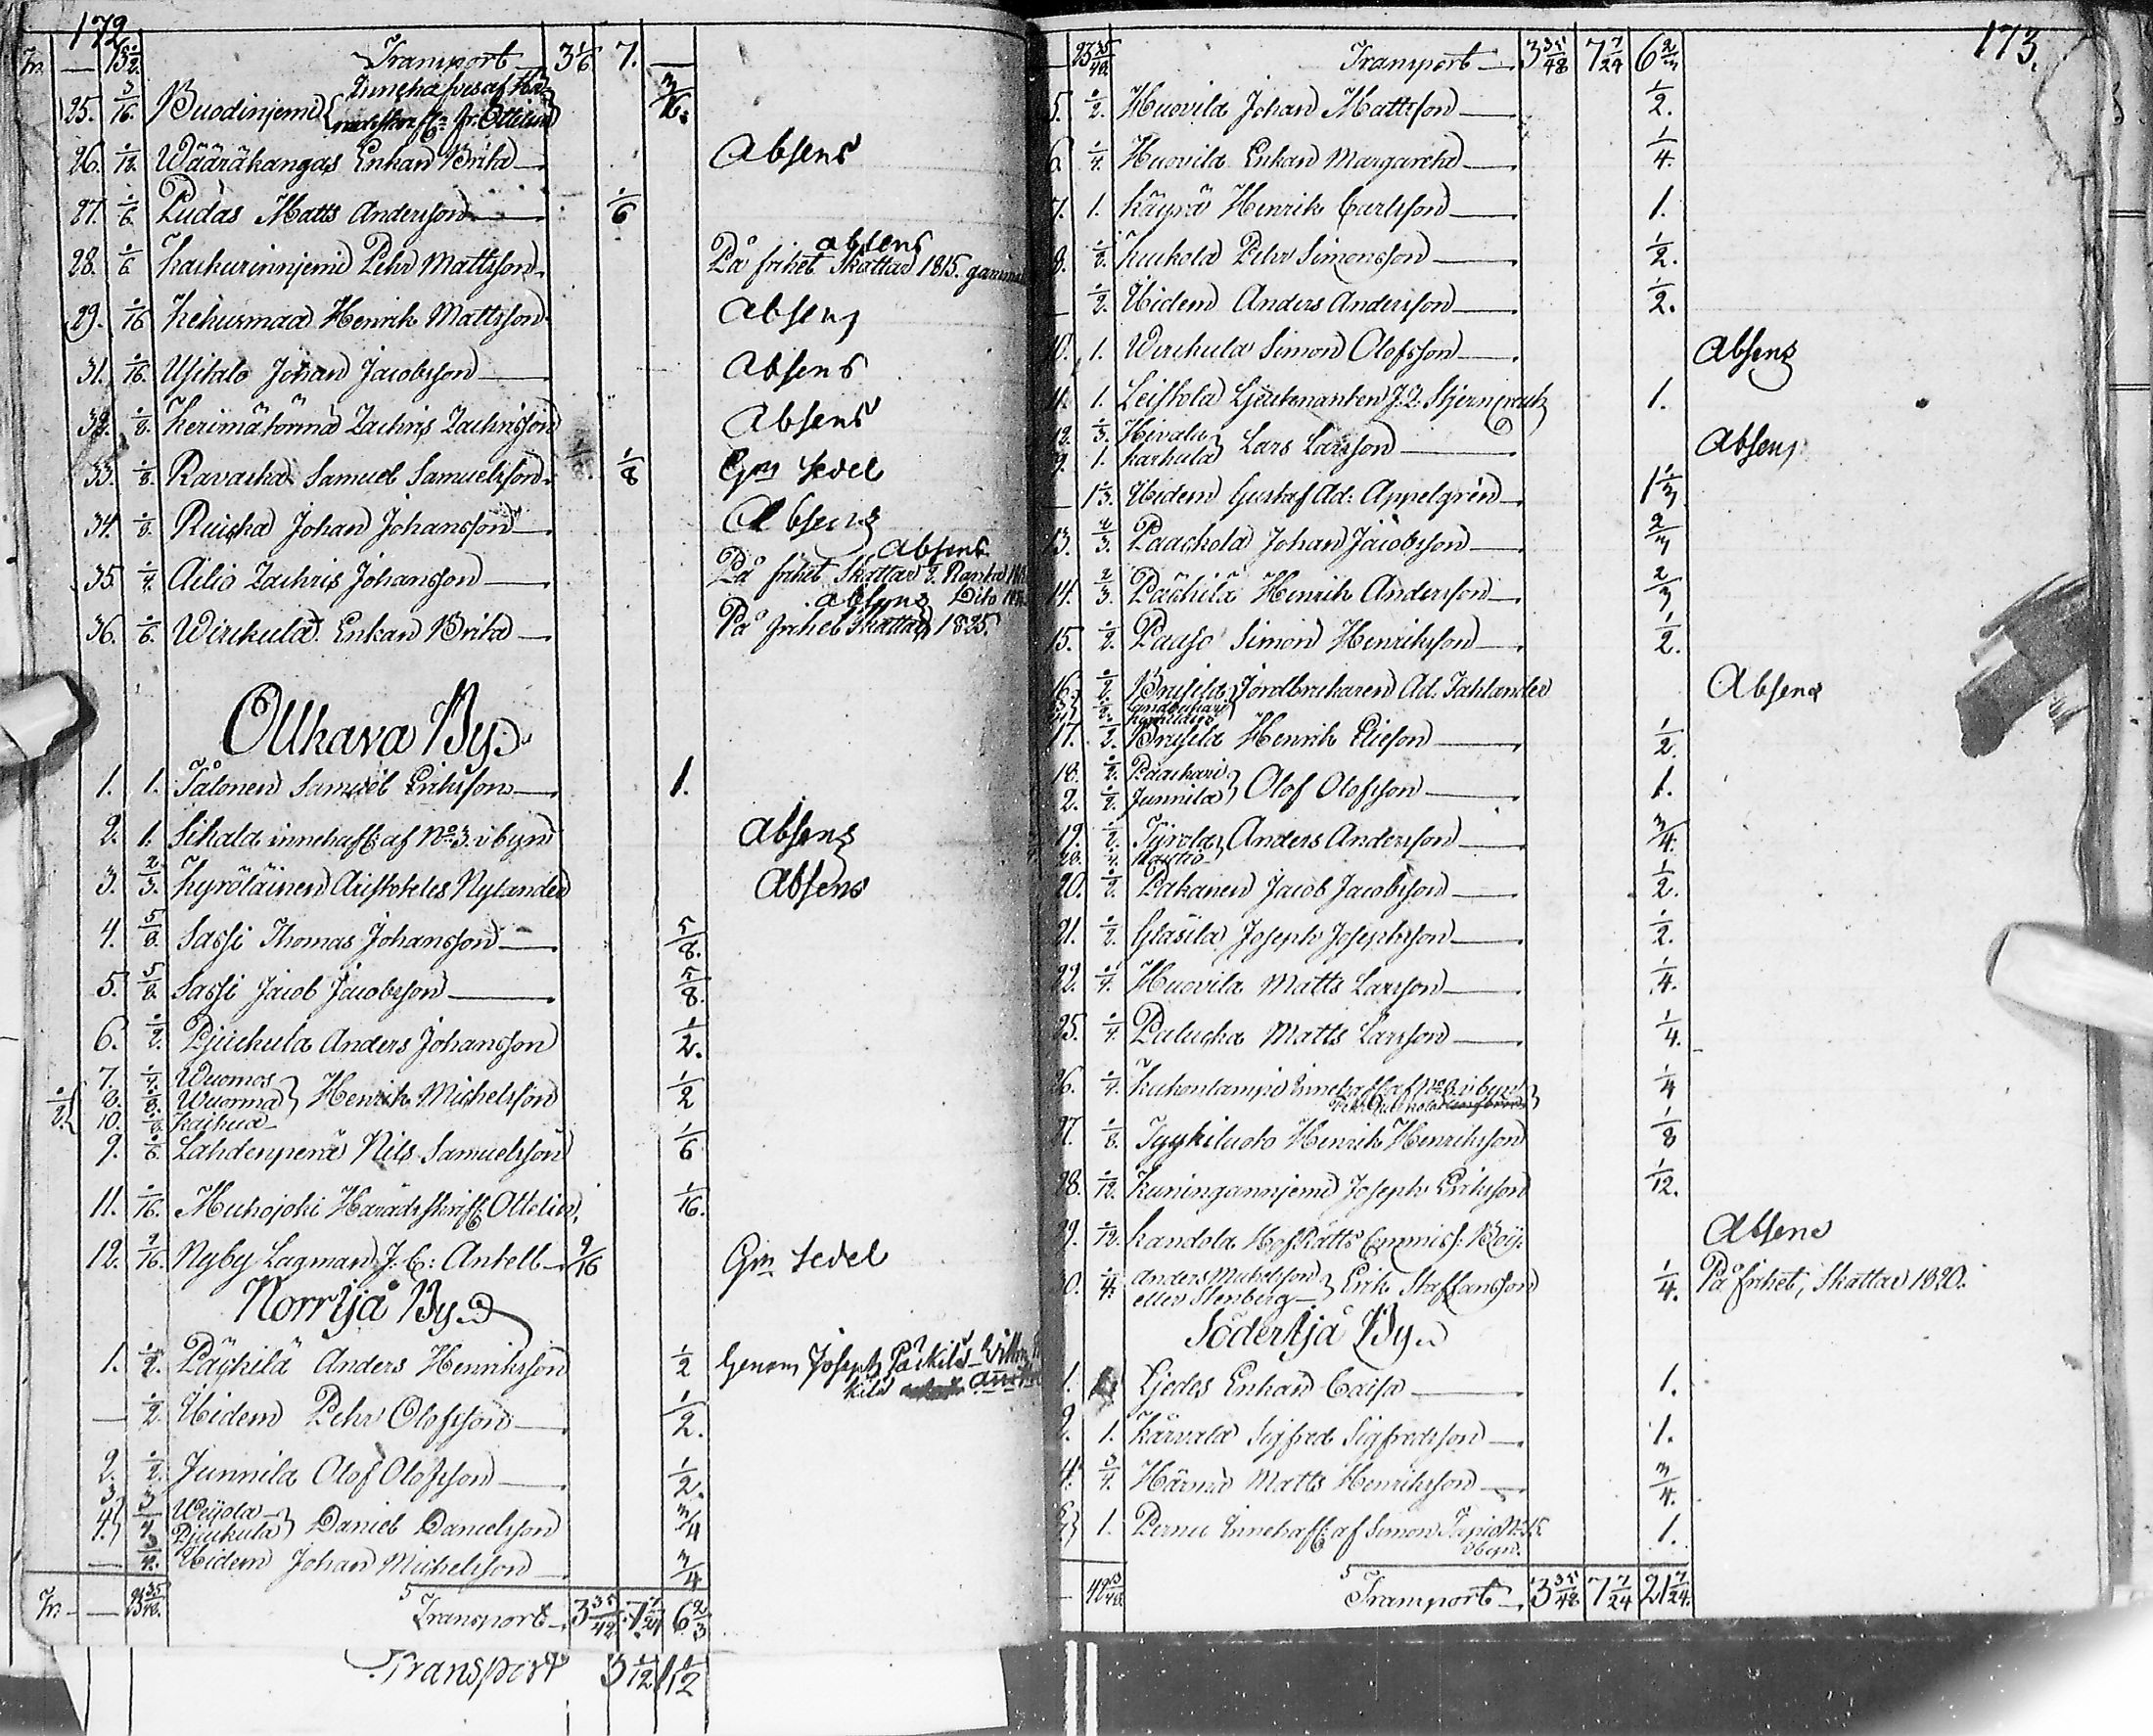 172.
Tr. — 15 1/2. Transport — 3 1/6 7. —
25. 3/16. Buodinjemi { Innehafves af Hä-
radsskr. Hr Ottelin } 3/16.
26. 1/12. Wääräkangas Enkan Brita — Absens
27. 1/6. Pudas Matts Andersson — 1/6
absens
28. 1/6 Kaikurinnjemi Pehr Mattsson. På frihet Skattar 1815.
29. 1/16 Kehusmaa Henrik Mattsson. Absens
31. 1/16. Ußitalo Johan Jacobsson — Absens
32. 1/8. Kerimäkorma Zachris Zachrisson Absens
33. 1/8. Ravaska Samuel Samuelsson. 1/8 Gm Sedel
34. 1/8. Ruiska Johan Johansson — Absens
Absens
35. 1/4. Ailio Zachris Johansson — På frihet Skattar
absens Dito
36. 1/6. Wirckula Enkan Brita — På frihet Skattar 1825.
Olkava By.
1. 1. Tålonen Samuel Eriksson — 1.
2. 1. Sihala innehaffs af No 3. i byn Absens
3. 2/3. Kyröläinen Aristoteles Nylander Absens
4. 5/8. Sassi Thomas Johansson — 5/8.
5. 5/8. Sassi Jacob Jacobsson — 5/8.
6. 1/2. Pjuckula Anders Johansson 1/2.
7. 1/4. Wuomos
8. 1/8. Wuorma } Henrik Michelsson 1/2
10. 1/8. Kaihua
9. 1/6. Lahdenperä Nils Samuelsson 1/6
11. 1/16. Muhojoki Häradsskrif. Ottelin. 1/16.
12. 9/16. Nyby Lagman J. C: Antell — 9/16 Gm Sedel
Norr Ijå By.
1. 1/2. Päckilä Anders Henriksson 1/2 Genom Joseph Päckilä
— 1/2. Ibidem Pehr Olofsson — 1/2.
2. 1/2. Junnila Olof Olofsson — 1/2.
3. 3/4 Weijola
4. Pjuckula } Daniel Danielsson 3/4
— 3/4. Ibidem Johan Michelsson — 3/4
Tr. — 23 35/48. Transport — 3 35/48 7 7/24 6 2/3
Transport 3 1/12 1 1/2
173.
23 35/48 Transport — 3 35/48 7 7/24 6 2/3
5. 1/2. Huovila Johan Mattsson — 1/2.
6. 1/4. Huovila Enkan Margaretha — 1/4.
7. 1. Käyrä Henrik Carlsson — 1.
8. 1/2. Kuckola Pehr Simonsson — 1/2.
— 1/2. Ibidem Anders Andersson — 1/2.
10. 1. Wirckula Simon Olofsson — Absens
11. 1. Leiskola Lieutenanten J. Q. Stjerncreutz 1.
12. 1/3. Hivala
9. 1. Karhula } Lars Larsson — Absens
— 1 1/3. Ibidem Gustaf Ad: Appelgrén — 1 1/3
13. 2/3. Paackola Johan Jacobsson — 2/3
14. 2/3. Päckilä Henrik Andersson — 2/3
15. 1/2. Pauso Simon Henriksson — 1/2.
16. 1/2. Brusila } Jordbrukaren Ad. Tahlander Absens
17. 1/2. Brusila Henrik Elieson — 1/2.
18. 1/2. Paackari
2. 1/2. Junnila } Olof Olofsson — 1.
19. 1/2. Tyrola } Anders Andersson — 3/4.
20. 1/2. Pakanen Jacob Jacobsson — 1/2.
21. 1/2. Gläsila Joseph Josephsson — 1/2.
22. 1/4. Huovila Matts Larsson — 1/4.
25. 1/4. Paluska Matts Larsson — 1/4.
26. 1/4. Kuhonlampi innehaffs af No 8. i byn 1/4
27. 1/8. Jyykiluoto Henrik Henriksson 1/8
28. 1/12. Kuningannjemi Joseph Eriksson 1/12.
29. 1/12. Kandola HofRätts Commiss: Roij. Absens
30. 1/4. Anders Michelsson
eller Stenberg } Erik Staffansson 1/4. På frihet, Skattar 1820.
Söder Ijå By.
1. Ljedes Enkan Caisa — 1.
2. 1. Kärnala Sigfred Sigfredsson — 1.
4. 3/4. Härmä Matts Henriksson — 3/4.
1. Pernu innehaff: af Simon Tapio No 15.
i byn. 1.
Transport — 3 35/48 7 7/24 21 7/24.